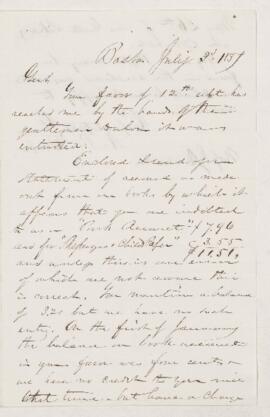 Boston July 2d 1857
Gent
Your favor of 12th ult. has
reached me by the hands of the
gentleman to whom it was
entrusted.
Enclosed I send you
statement of account as made
out from our books by which it
appears that you are indebted
to us on "Book Account" 7.96
and for 3.55
$11.51.
and unless there is an error
of which we are not aware this
is correct. You mention a balance
of 3.21 but we have no such
entry. On the first of January
the balance on book account
in your favor was four cents &
we have no credit to you since
that time - but have a charge